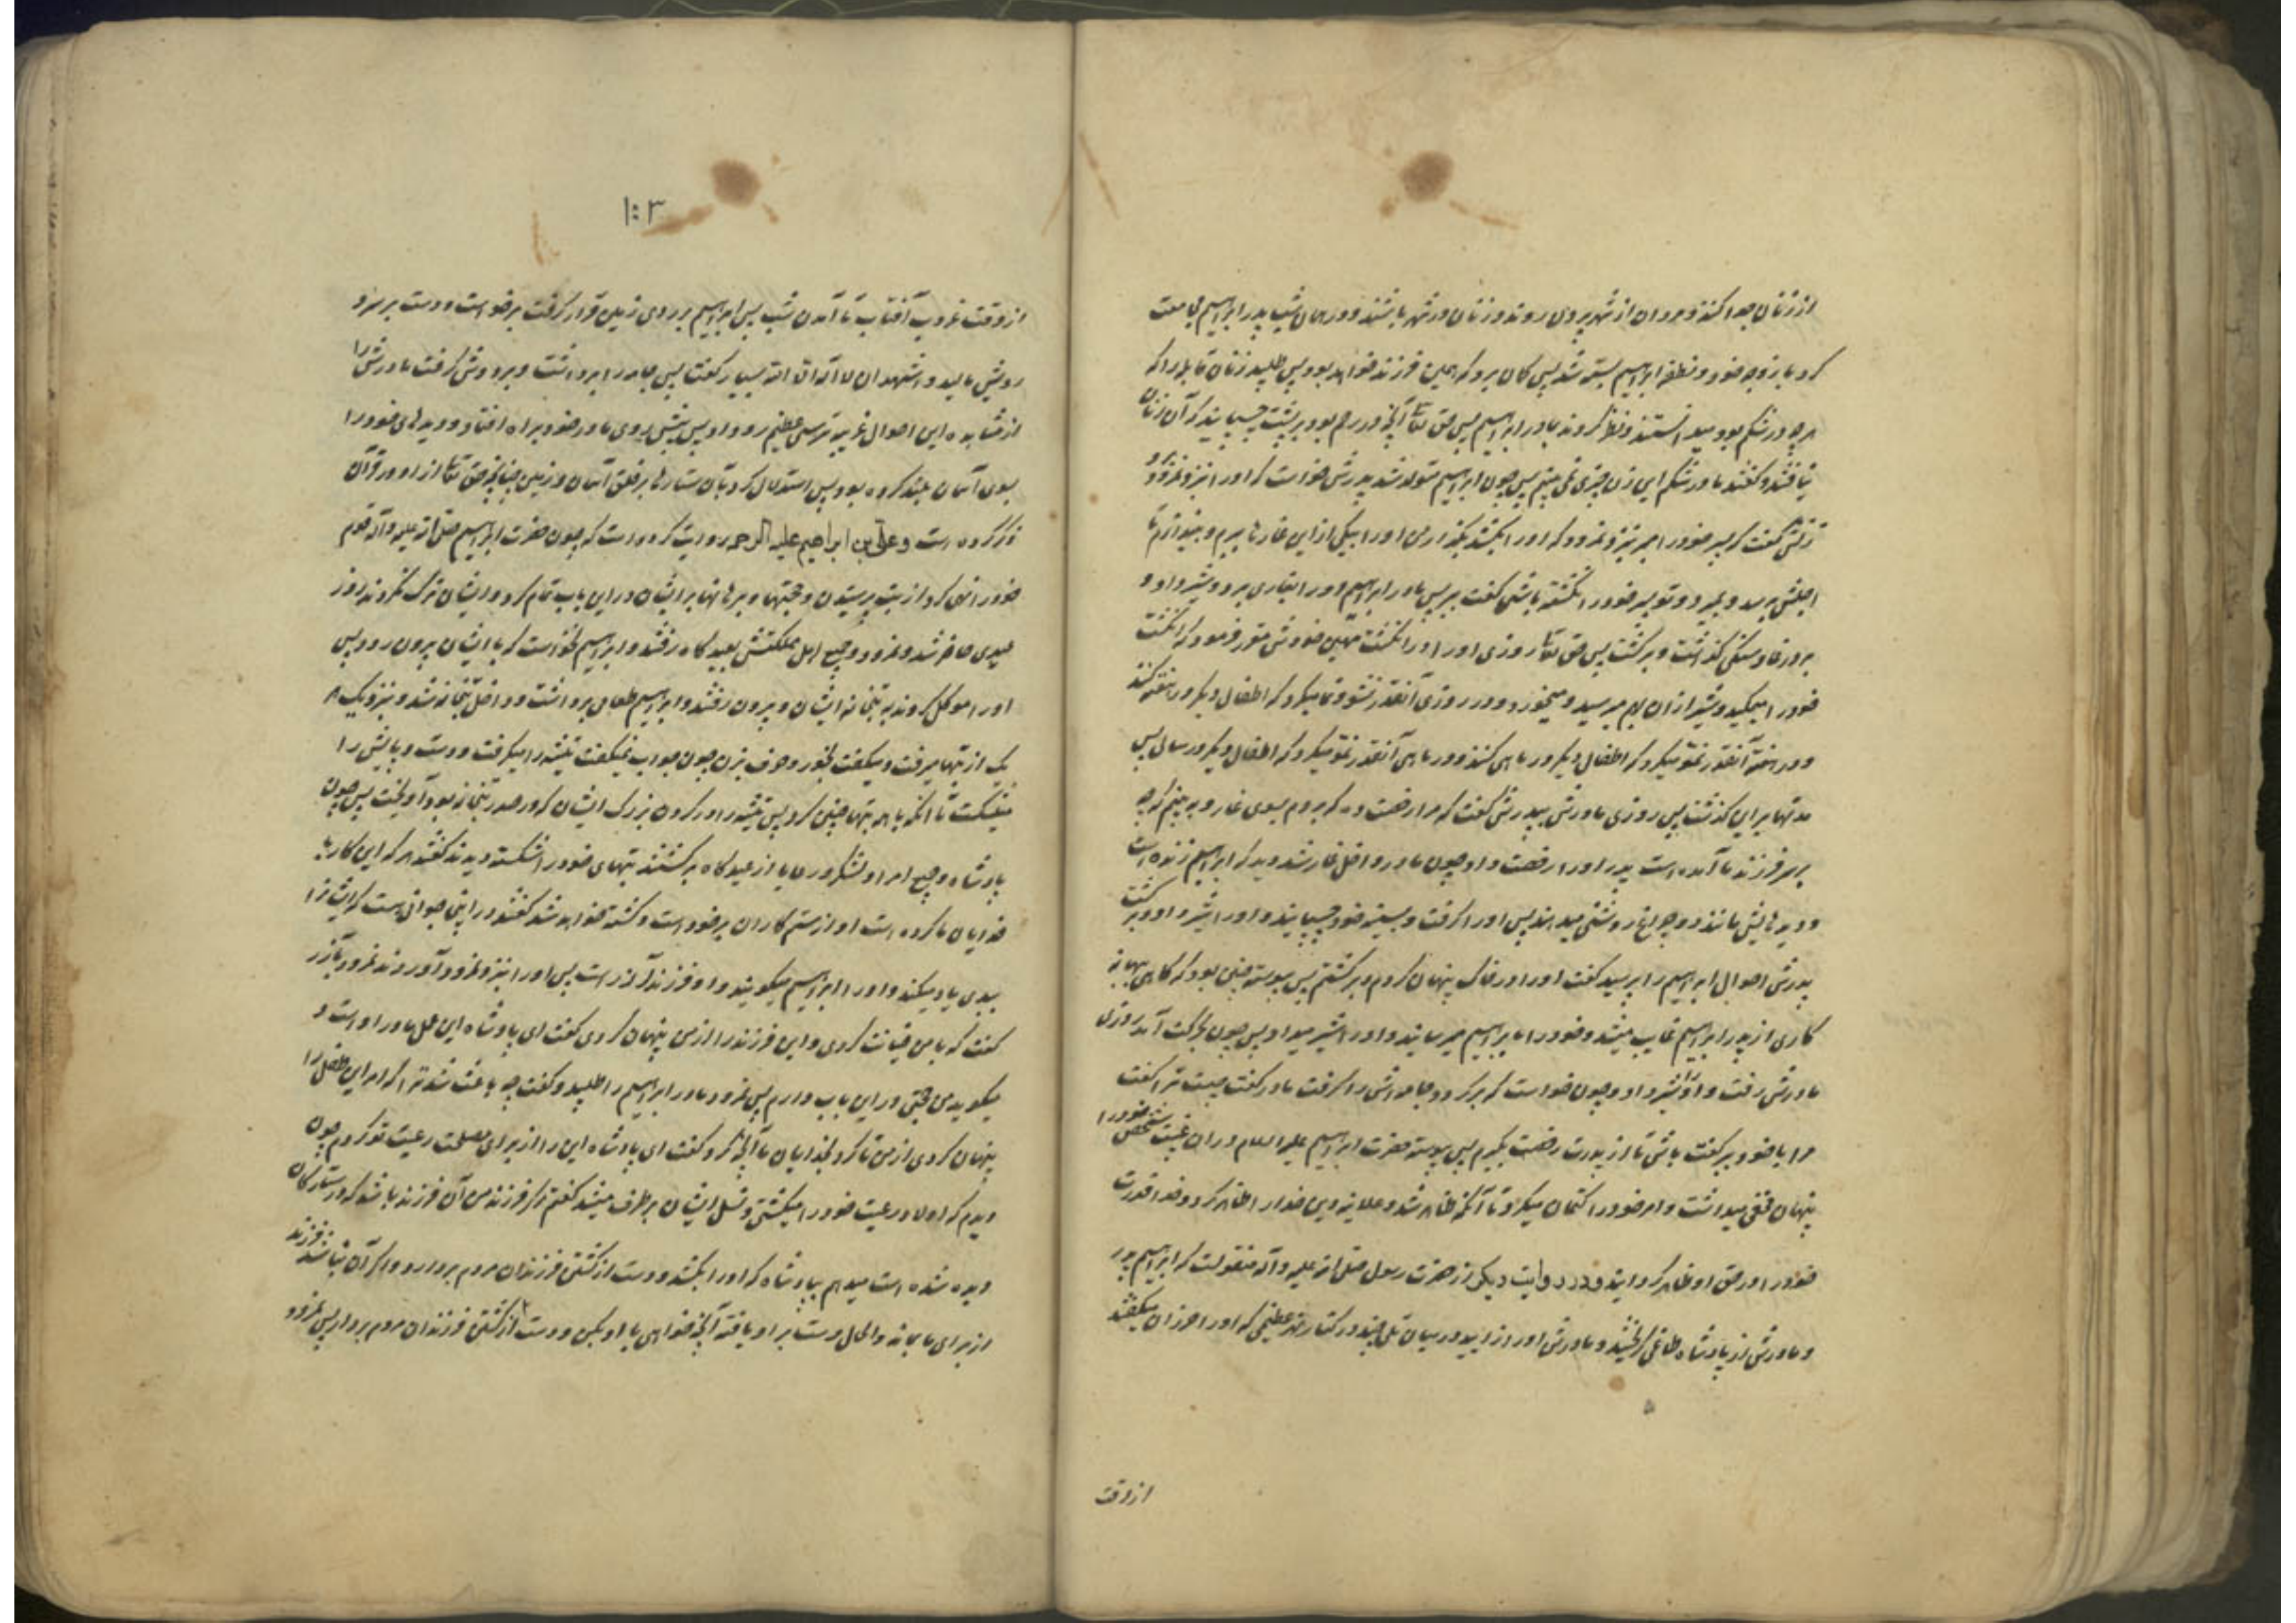 از زنان جدا کنند و مردان از شهر بیرون روند و زنان در شهر باشند و در همان شب پدر ابراهیم مجامعت
کرد با زوجه خود و نطفه ابراهیم بسته شد پس گمان برد که همین فرزند خواهد بود پس طلبید زنان قابله را که
هرچه در شکم بود میدانستند و نظر کردند بمادر ابراهیم پس حق تعالی آنچه در رحم بود بر پشت چسبانید که آن زنان
نیافتند و گفتند ما در شکم این زن چیزی نمی بینیم پس چون ابراهیم متولد شد پدرش خواست که او را بنزد نمرود برد
زنش گفت که پسر خود را مبر بنزد نمرود که او را بکشد بگذار من او را بیکی از این غارها ببرم و بیندازم تا
اجلش برسد و بمیرد و تو پسر خود را نکشته باشی گفت ببر پس مادر ابراهیم او را بغاری برد و شیر داد و
بر در غار سنگی گذاشت و برگشت پس حق تعالی روزی او را در انگشت مهین خودش مقرر فرمود که انگشت
خود را میمکید و شیر از آن بهم میرسید و میخورد و در روزی آنقدر نشو و نما میکرد که اطفال دیگر در هفته کنند
و در هفته آنقدر نمو میکرد که اطفال دیگر در ماهی کنند و در ماهی آنقدر نمو میکرد که اطفال دیگر در سالی پس
مدتها بر این گذشت پس روزی مادرش بپدرش گفت که مرا رخصت ده که بروم بسوی غار و ببینم که چه
بر سر فرزند ما آمده است پدر او را رخصت داد چون مادر داخل غار شد دید که ابراهیم زنده است
و دیدهایش مانند دو چراغ روشنی میدهند پس او را گرفت و بسینه خود چسبانید و او را شیر داد و برگشت
پدرش احوال ابراهیم را پرسید گفت او را در خاک پنهان کردم و برگشتم پس پیوسته چنین بود که گاهی بهانه
کاری از پدر ابراهیم غایب میشد و خود را بابراهیم میرسانید و او را شیر میداد پس چون بحرکت آمد روزی
مادرش رفت و او را شیر داد و چون خواست که برگردد جامه اش را گرفت مادر گفت چیست ترا گفت
مرا با خود ببر گفت باش تا از پدرت رخصت بگیرم پس پیوسته حضرت ابراهیم علیه السلام در آن غیبت شخص خود را
پنهان و مخفی میداشت و امر خود را کتمان میکرد تا آنکه ظاهر شد و علانیه دین خدا را اظهار کرد و خدا قدرت
خود را در حق او ظاهر گردانید و در روایت دیگر از حضرت رسول صلی الله علیه و آله منقولست که ابراهیم پدر
و مادرش از پادشاه طاغی گریختند و مادرش او را زایید در میان تلی چند در کنار نهر عظیمی که او را حزران میگفتند
از وقت
۱۰۳
از وقت غروب آفتاب تا آمدن شب پس ابراهیم بر روی زمین قرار گرفت برخواست و دست بر سر و
رویش مالید و اشهد ان لا اله الا الله بسیار گفت پس جامه را برداشت و بر دوش گرفت مادرش را
از مشاهده این احوال غریبه ترسی عظیم رو داد پس پیش روی مادر خود براه افتاد و دیدهای خود را
بسوی آسمان بلند کرده بود پس استدلال کرد بآن ستارها بر خلق آسمان و زمین چنانچه حق تعالی از او در قرآن
ذکر کرده است و علی بن ابراهیم علیه الرحمه روایت کرده است که چون حضرت ابراهیم صلی الله علیه و آله قوم
خود را نهی کرد از بت پرستیدن و حجتها و برهانها بر ایشان در این باب تمام کرد و ایشان ترک نکردند روز
عیدی حاضر شد و نمرود و جمیع اهل مملکتش بعیدگاه رفتند و ابراهیم نخواست که با ایشان بیرون رود پس
او را موکل کردند به بتخانه ایشان و بیرون رفتند و ابراهیم طعامی برداشت و داخل بتخانه شد و بنزدیک هر
یک از بتها میرفت و میگفت بخور و حرف بزن چون جواب نمیگفت تیشه را میگرفت و دست و پایش را
میشکست تا آنکه با همه بتها چنین کرد پس تیشه را در گردن بزرگ ایشان که در صدر بتخانه بود آویخت پس چون
پادشاه و جمیع امرا و لشکر و رعایا از عیدگاه برگشتند بتهای خود را شکسته دیدند گفتند هر که این کار با
خدایان ما کرده است او از ستمکاران بر خود است و کشته خواهد شد گفتند در اینجا جوانی هست که ایشان را
ببدی یاد میکند و او را ابراهیم میگویند و او فرزند آزر است پس او را بنزد نمرود آوردند نمرود بآزر
گفت که با من خیانت کردی و این فرزند را از من پنهان کردی گفت ای پادشاه این عمل مادر او است و
میگوید من حجتی در این باب دارم پس نمرود مادر ابراهیم را طلبید و گفت چه باعث شد ترا که امر این طفل را
پنهان کردی از من تا کرد بخدایان ما آنچه کرد گفت ای پادشاه این را از برای مصلحت رعیت تو کردم چون
دیدم که اولاد رعیت خود را میکشتی و نسل ایشان برطرف میشد گفتم اگر فرزند من آن فرزند باشد که در ستارگان
دیده شده است میدهم بپادشاه که او را بکشد و دست از کشتن فرزندان مردم بردارد و اگر آن نباشد فرزند
از برای ما بماند والحال دست بر او یافته آنچه خواهی با او بکن و دست از کشتن فرزندان مردم بردار پس نمرود